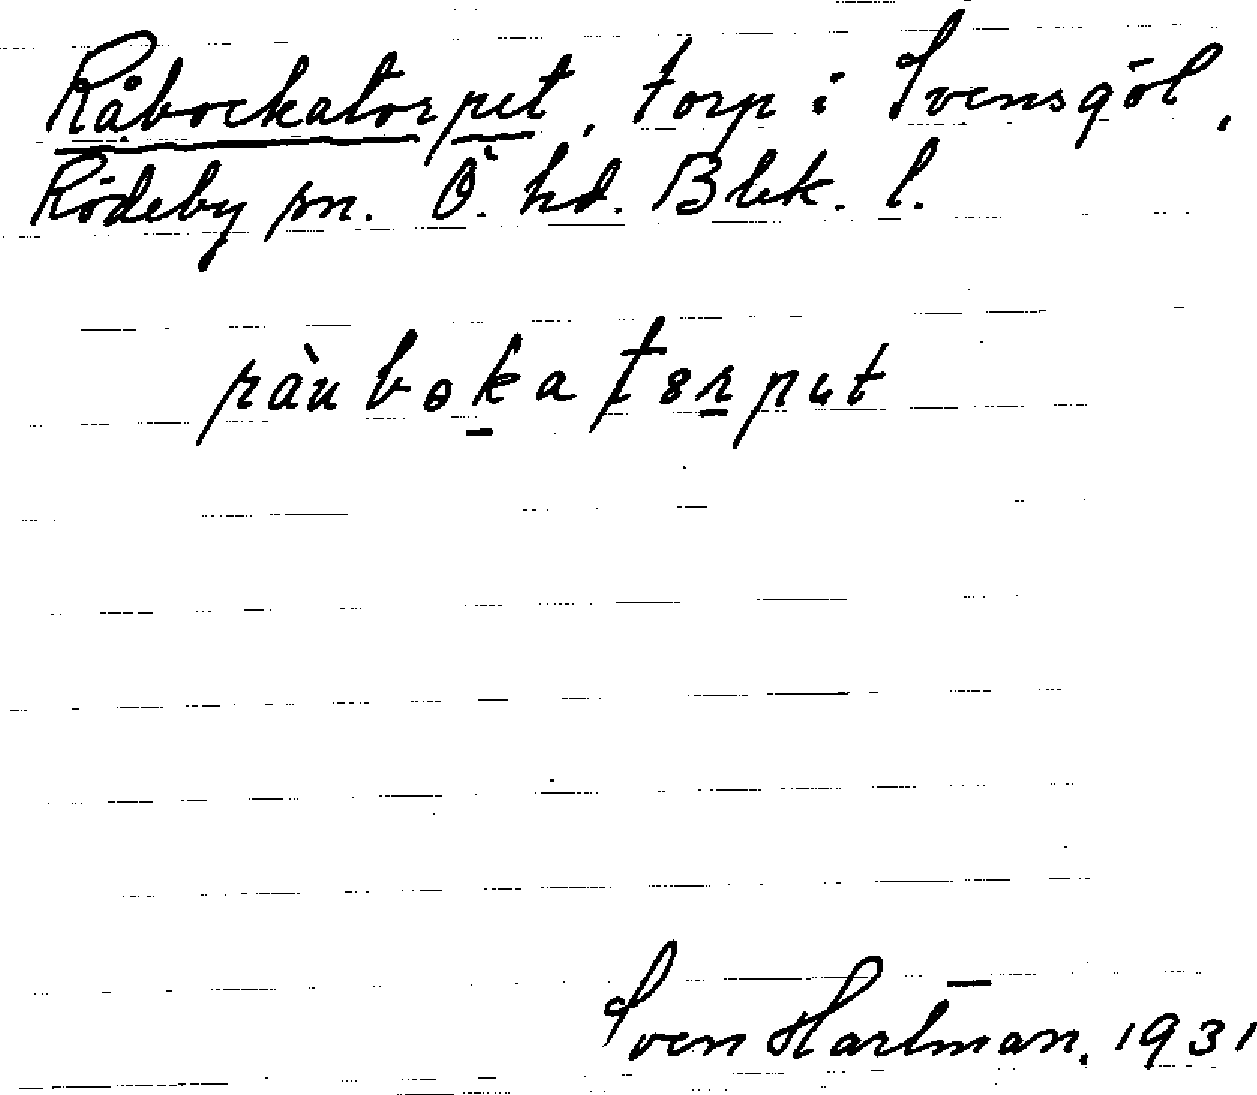 Råbockatorpet, torp i Svensgöl,
Rödeby sn. Ö. hd. Blek. l.
ràu boka torput
Sven Hartman. 1931